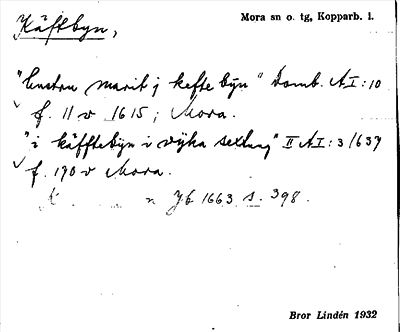 Käftbyn,
Mora sn o. tg, Kopparb. l.
"hustru marit j kefte byn" Domb. AI:10
f. 11 v 1615; Mora.
"i käfftebyn i vyka sextung" II AI:3 1637
f. 190 v Mora.
K n Jb 1663 s. 398.
Bror Lindén 1932